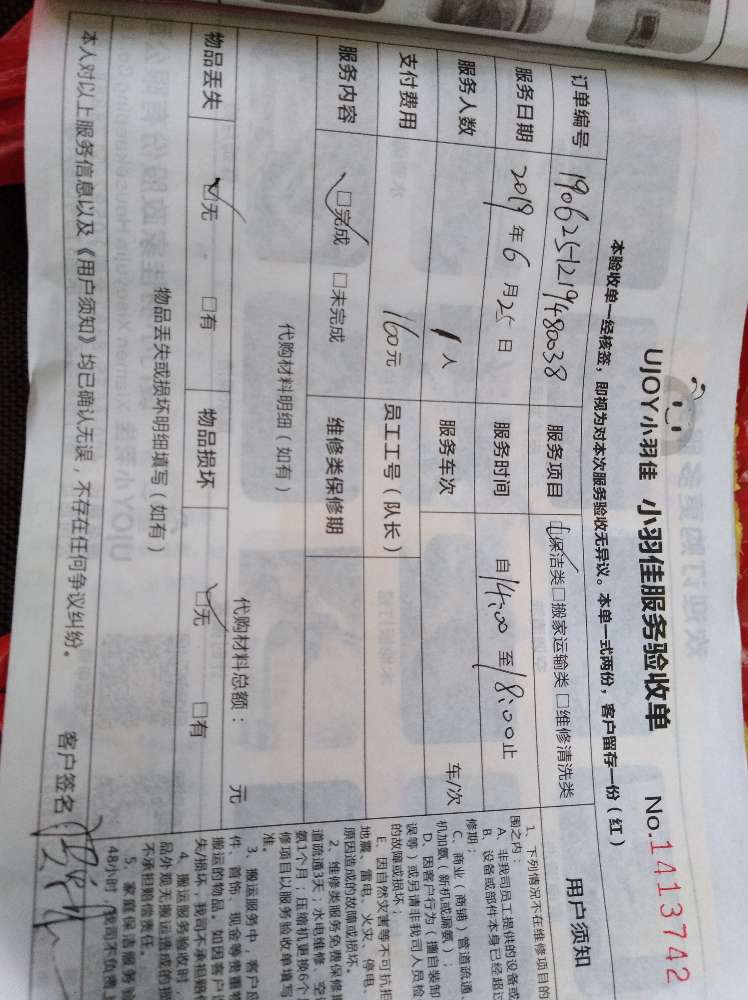 UJOY小羽佳 小羽佳服务验收单 No.1413742
本验收单一经核签，即视为对本次服务验收无异议。本单一式两份，客户留存一份（红）
订单编号 190625121948038 服务项目 □保洁类□搬家运输类□维修清洗类
服务日期 2019年6月25日 服务时间 自14:00至18:00止
服务人数 1人 服务车次 车/次
支付费用 160元 员工工号（队长）
服务内容 □完成 □未完成 维修类保修期
代购材料明细（如有） 代购材料总额： 元
物品丢失 □无 □有 物品损坏 □无 □有
物品丢失或损坏明细填写（如有）
本人对以上服务信息以及《用户须知》均已确认无误，不存在任何争议纠纷。 客户签名
用户须知
1、下列情况不在维修项目的
围之内：
A、非我司员工提供的设备或
B、设备或部件本身已经超过
修期；
C、商业（商铺）管道疏通
机加氨（新机或漏氨）；
D、因客户行为（擅自装卸
误等）或另请非我司人员检
的故障或损坏；
E、因自然灾害等不可抗拒
地震、雷电、火灾、停电、
原因造成的故障或损坏。
2、维修类服务免费保修
道疏通3天；水电维修、空
氨1个月；压缩机更换6个
修项目以服务验收单填写
准。
3、搬运服务中，客户应
件、首饰、现金等贵重物
搬运的物品。如因客户
失/损坏，我司不承担赔
4、搬运服务验收时，
品外观无搬运造成的损
不承担赔偿责任。
5、家庭保洁服务验
48小时，我司不负责